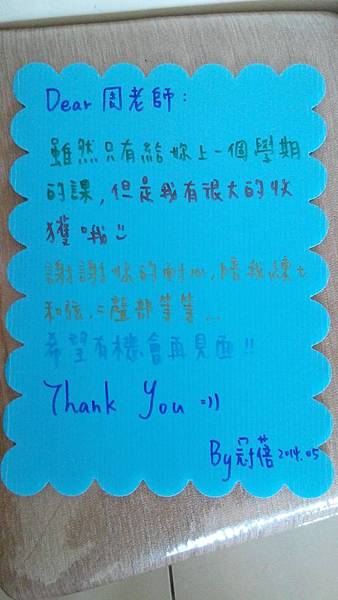 Dear 周老師:
雖然只有給妳上一個學期
的課,但是我有很大的收
獲哦
謝謝妳的耐心,陪我練七
和弦.二聲部等等...
希望有機會再見面!!
Thank You =))
By 冠蓓 2014.05